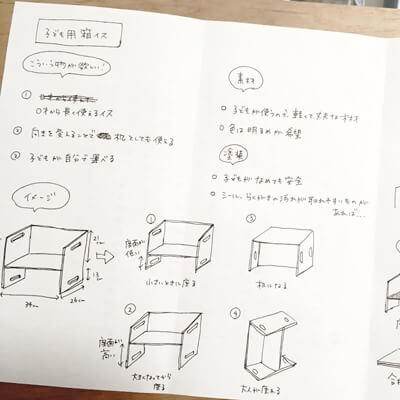 子ども用箱イス
こういう物が欲しい!
①
0才から長く使えるイス
② 向きを変えることで 机としても使える
③ 子どもが自分で運べる
イメージ
21cm
13
34cm
26cm
①
座面が
低い
小さいときに座る
②
座面が
高い
大きくなってから
座る
素材
○ 子どもが使うので、軽くて丈夫な木材
○ 色は明るめが希望
塗装
○ 子どもがなめても安全
○ シール、らくがきの汚れが取れやすいものが
あれば…
③
机になる
④
大人が座れる